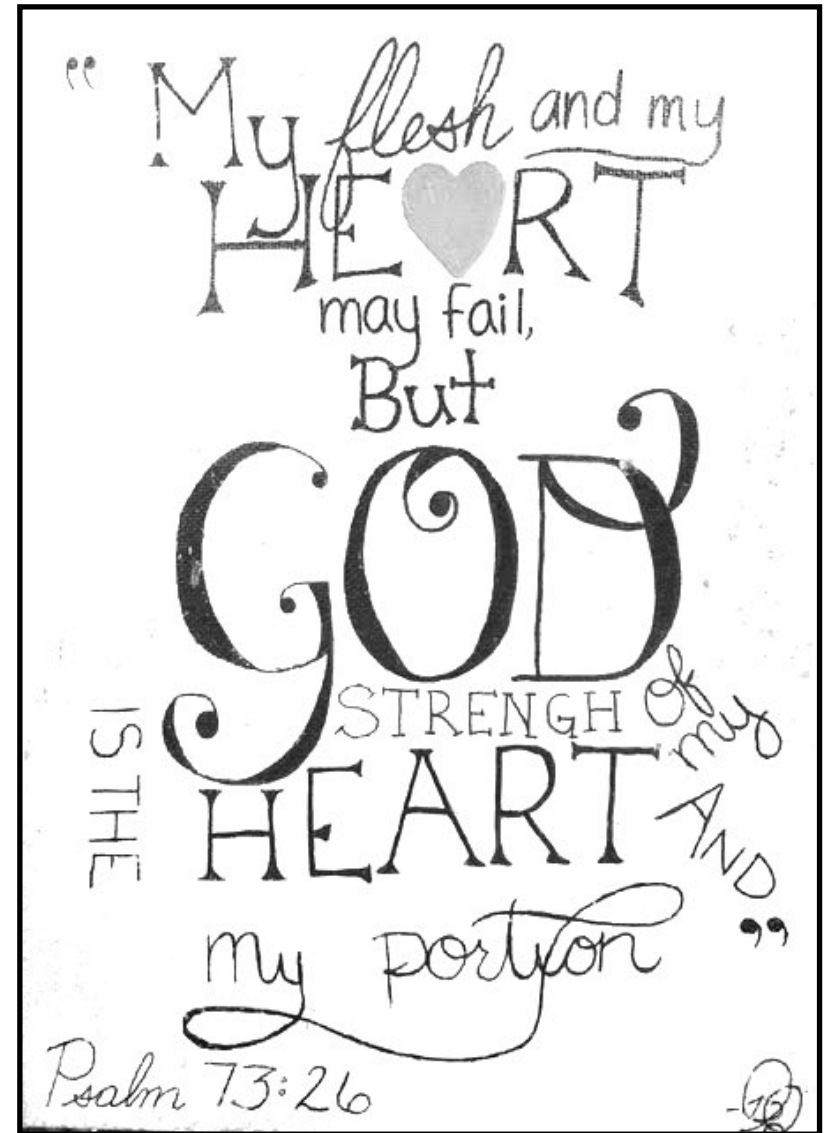 “ My flesh and my
HE RT
may fail,
But
GOD
IS THE
STRENGH Of my
HEART AND
my portion ”
Psalm 73:26